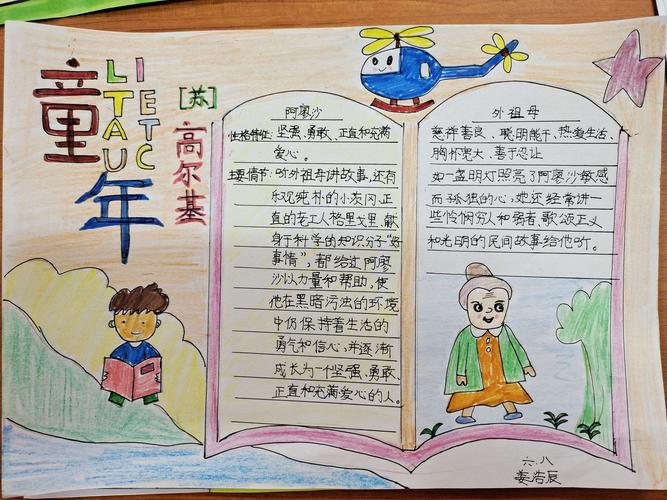 童年
LITAU
IETC
[苏]
高尔基
阿廖沙
性格特征:坚强、勇敢、正直和充满
爱心。
主要情节:听外祖母讲故事,还有
乐观纯朴的小茨冈,正
直的老工人格里戈里、献
身于科学的知识分子“好
事情”,都给过阿廖
沙以力量和帮助,使
他在黑暗污浊的环境
中仍保持着生活的
勇气和信心,并逐渐
成长为一个坚强、勇敢、
正直和充满爱心的人。
外祖母
慈祥善良、聪明能干、热爱生活、
胸怀宽大、善于忍让
如一盏明灯照亮了阿廖沙敏感
而孤独的心,她还经常讲一
些怜悯穷人和弱者、歌颂正义
和光明的民间故事给他听。
六.八
姜浩辰